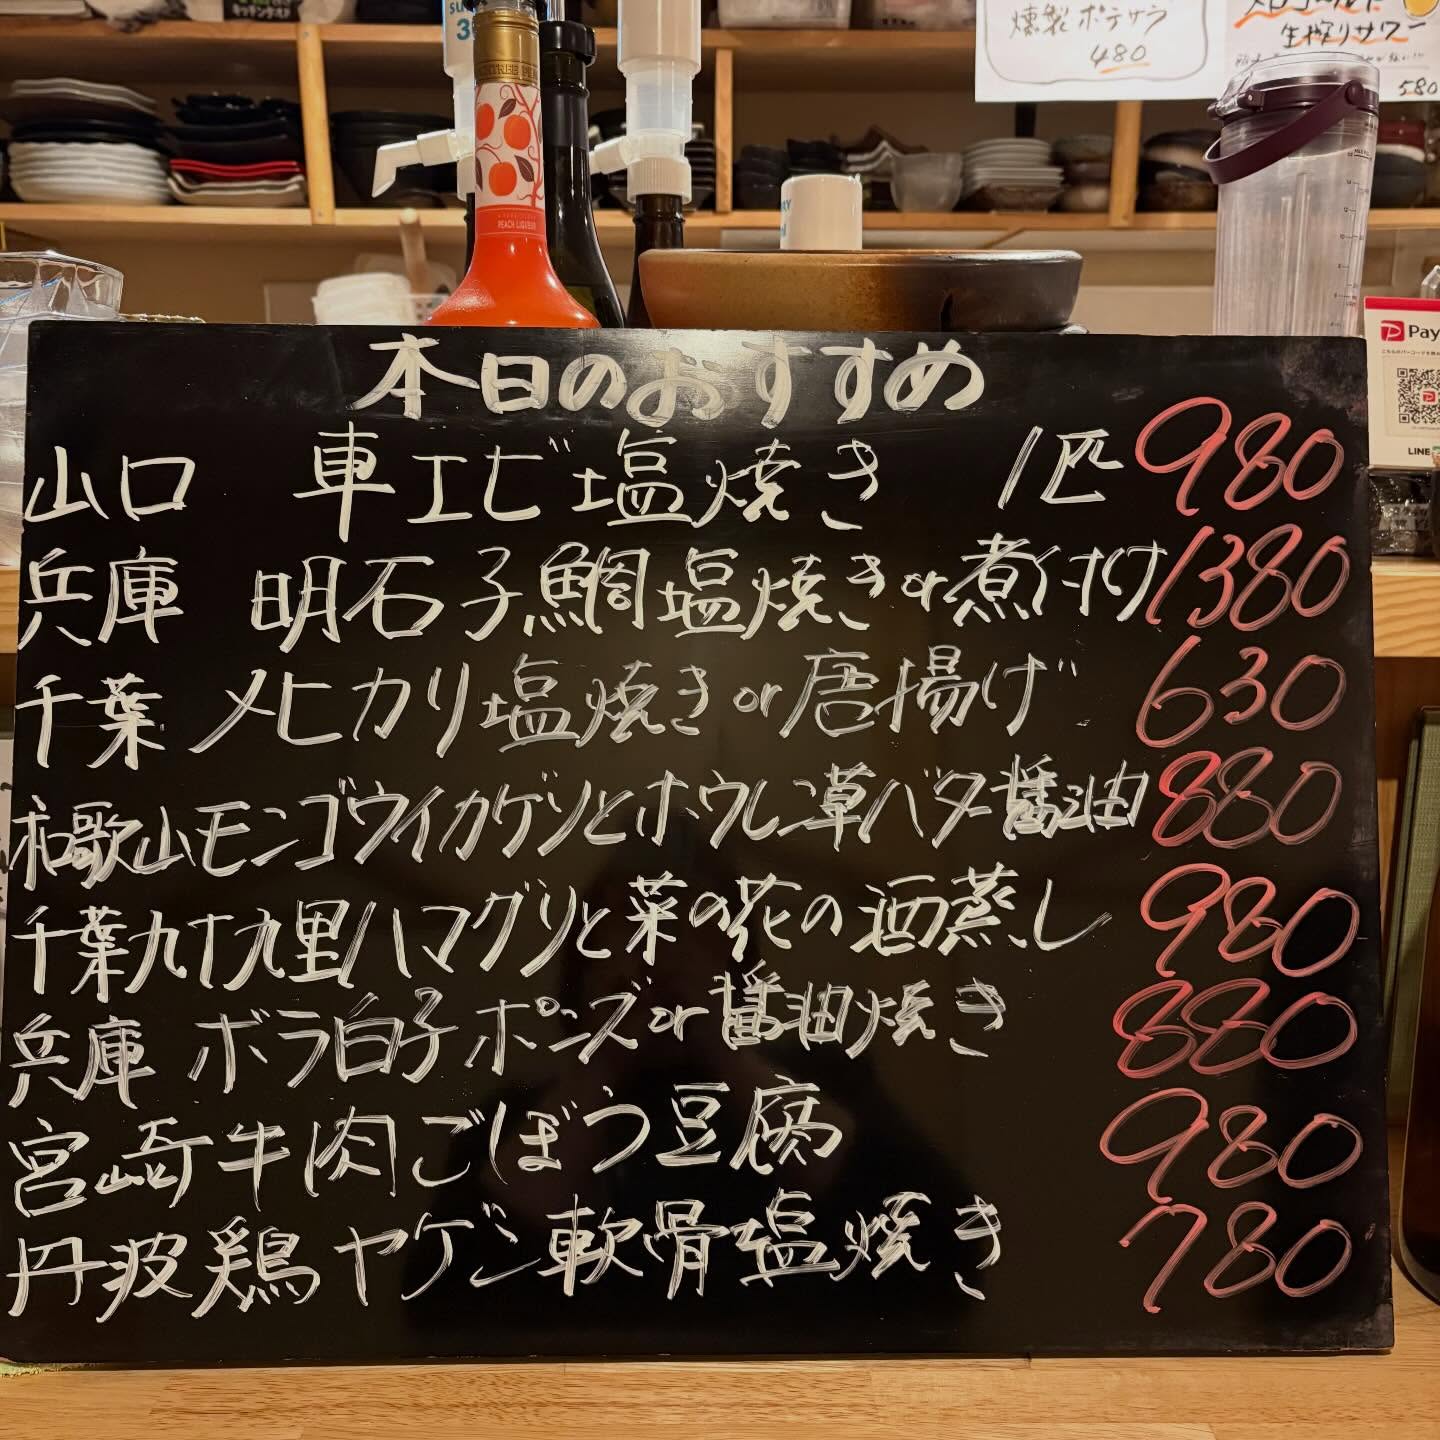 燻製ポテサラ
480
生搾りサワー
580
PEACH LIQUEUR
Pay
LINE
本日のおすすめ
山口 車エビ塩焼き 1匹 980
兵庫 明石子鯛塩焼きor煮付け 1380
千葉 メヒカリ塩焼きor唐揚げ 630
和歌山モンゴウイカゲソとホウレン草バター醤油 880
千葉九十九里ハマグリと菜の花の酒蒸し 980
兵庫 ボラ白子ポンズor醤油焼き 880
宮崎牛肉ごぼう豆腐 980
丹波鶏ヤゲン軟骨塩焼き 780